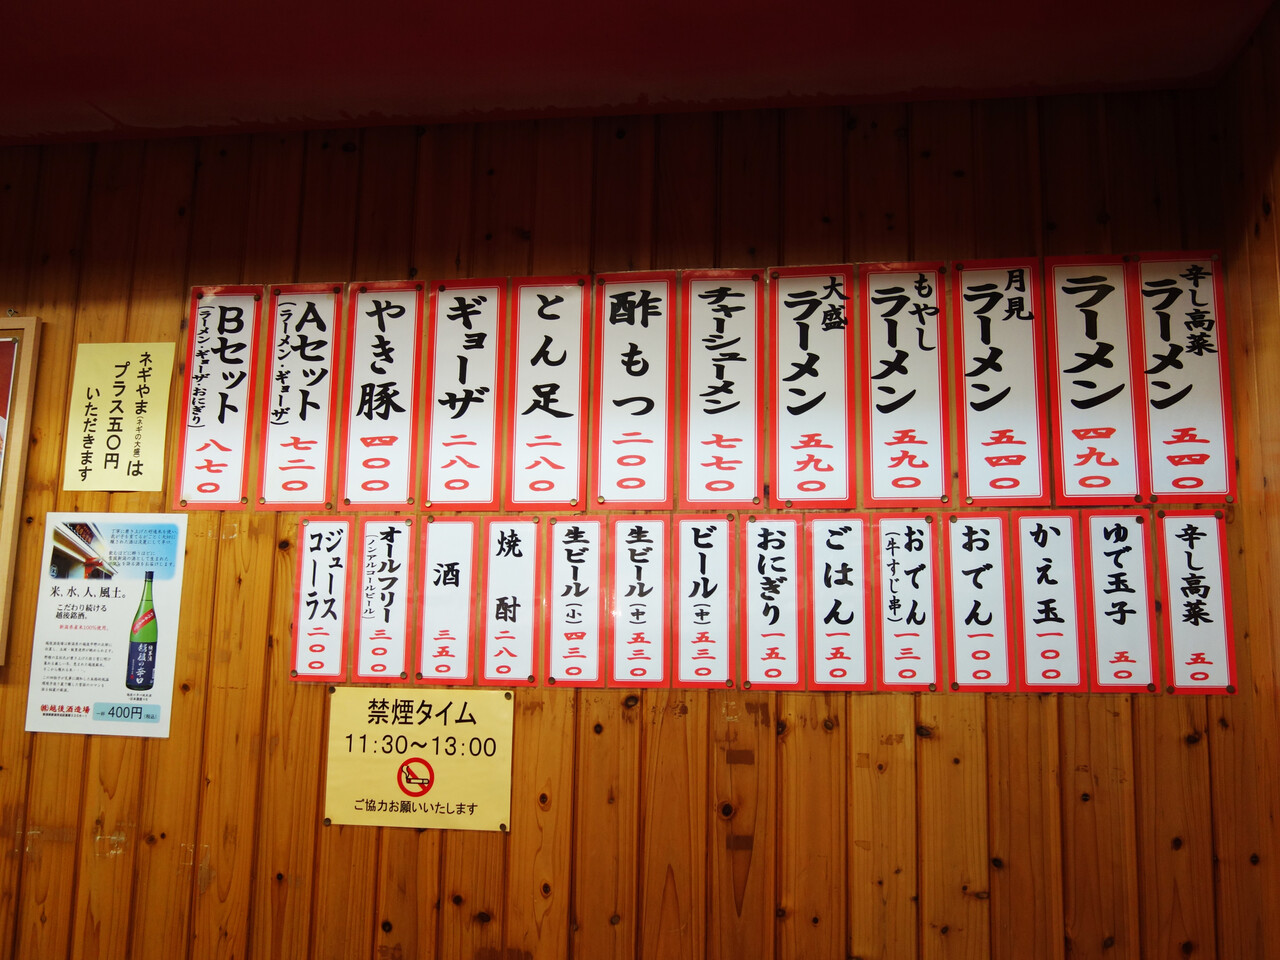 辛し高菜
ラーメン
五四〇
ラーメン
四九〇
月見
ラーメン
五四〇
もやし
ラーメン
五九〇
大盛
ラーメン
五九〇
チャーシューメン
七七〇
酢もつ
二〇〇
とん足
二八〇
ギョーザ
二八〇
やき豚
四〇〇
Aセット
(ラーメン・ギョーザ)
七二〇
Bセット
(ラーメン・ギョーザ・おにぎり)
八七〇
辛し高菜
五〇
ゆで玉子
五〇
かえ玉
一〇〇
おでん
一〇〇
おでん
(牛すじ串)
一三〇
ごはん
一五〇
おにぎり
一五〇
ビール(中)
五三〇
生ビール(中)
五三〇
生ビール(小)
四三〇
焼酎
二八〇
酒
三五〇
オールフリー
(ノンアルコールビール)
三〇〇
ジュース
コーラ
二〇〇
ネギやま(ネギの大盛)は
プラス五〇円
いただきます
米、水、人、風土。
こだわり続ける
越後銘酒。
越後の辛口
㈱越後酒造場
400円(税込)
禁煙タイム
11:30～13:00
ご協力お願いいたします